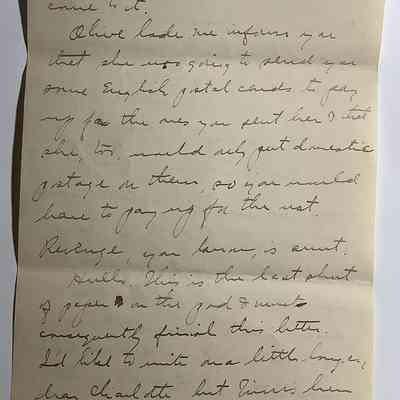 come to it.
Olive bade me inform you
that she was going to send you
some English postal cards to pay
up for the ones you sent her & that
she, too, would only put domestic
postage on them, so you would
have to pay up for the rest.
Revenge, you know, is sweet.
Hello. This is the last sheet
of paper on the pad & must
consequently finish this letter.
I'd like to write on a little longer,
dear Charlotte but